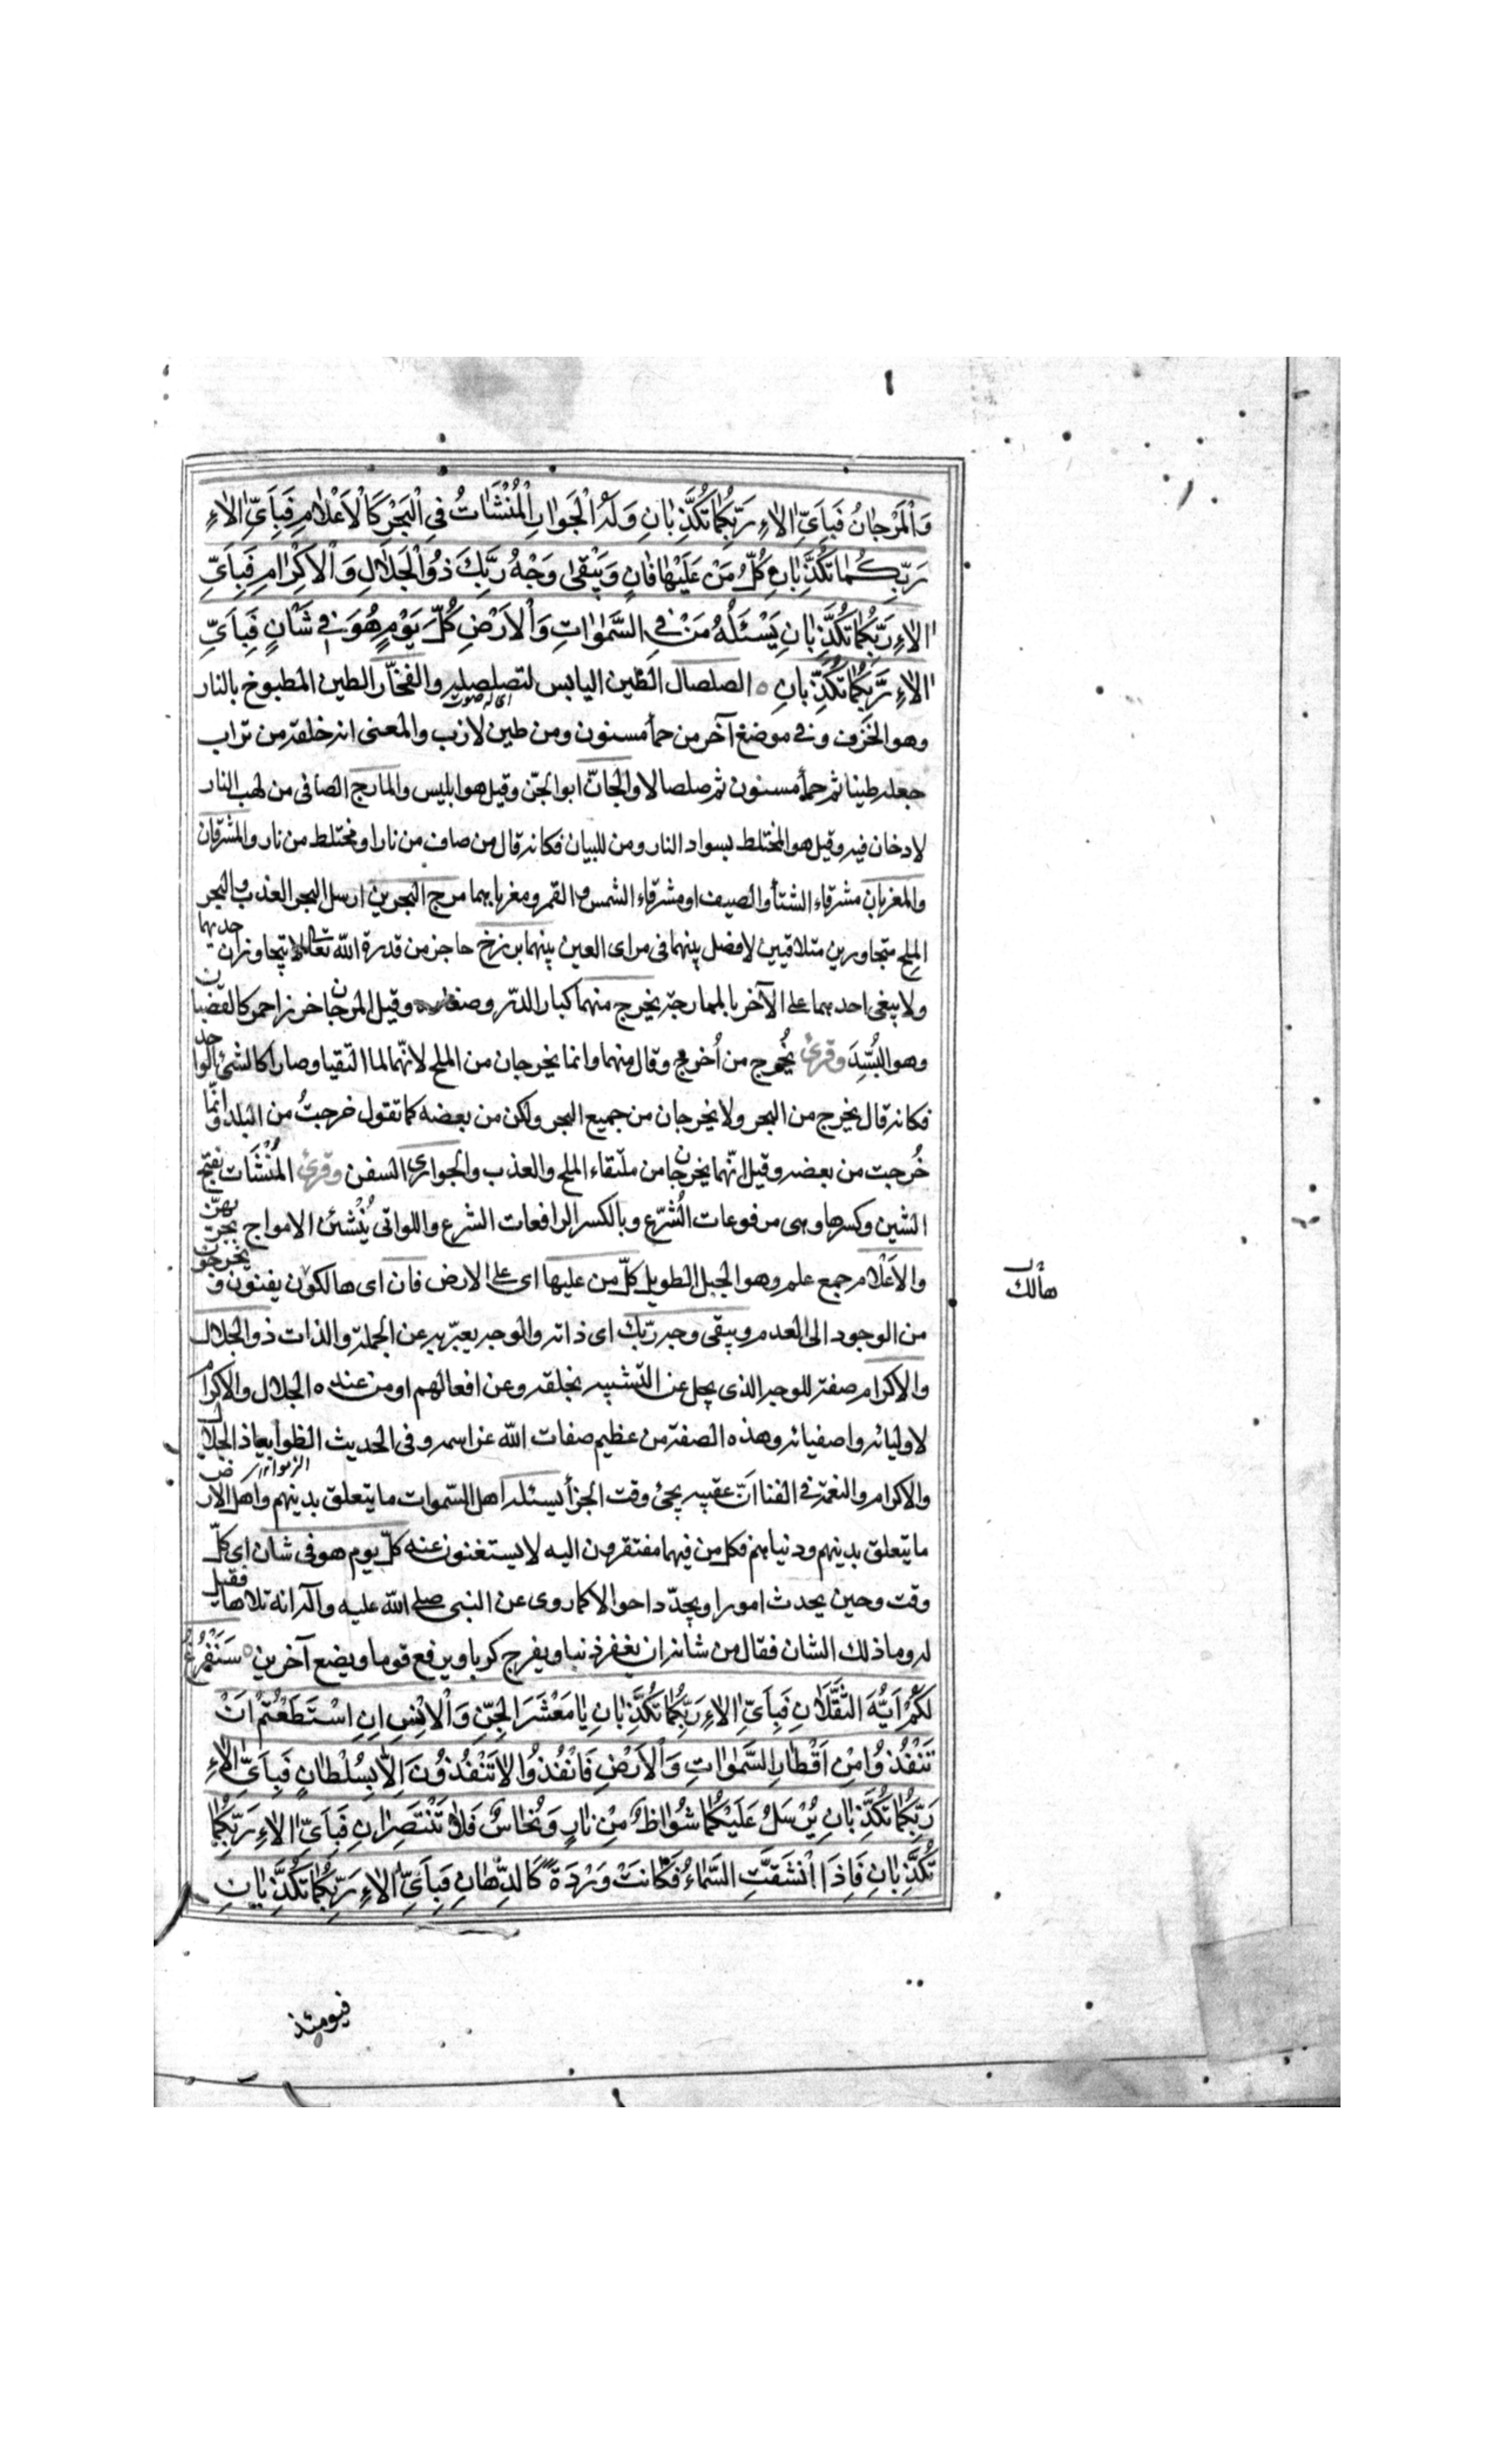 وَالْمَرْجٰانُ فَبِاَيِّ اٰلاٰءِ رَبِّكُمٰا تُكَذِّبٰانِ وَلَهُ الْجَوٰارِ الْمُنْشَاٰتُ فِي الْبَحْرِ كَالْاَعْلاٰمِ فَبِاَيِّ اٰلاٰءِ
رَبِّكُمٰا تُكَذِّبٰانِ كُلُّ مَنْ عَلَيْهٰا فٰانٍ وَيَبْقىٰ وَجْهُ رَبِّكَ ذُو الْجَلاٰلِ وَالْاِكْرٰامِ فَبِاَيِّ
اٰلاٰءِ رَبِّكُمٰا تُكَذِّبٰانِ يَسْئَلُهُ مَنْ فِي السَّمٰوٰاتِ وَالْاَرْضِ كُلَّ يَوْمٍ هُوَ في شَاْنٍ فَبِاَيِّ
اٰلاٰءِ رَبِّكُمٰا تُكَذِّبٰانِ الصلصال الطّين اليابس لتصلصله والفخّار الطين المطبوخ بالنار
اى له صوت
وهو الخَزَف وفى موضع آخر من حمأ مسنون ومن طين لازب والمعنى انه خلقه من تراب
جعله طينا ثم حمأ مسنون ثم صلصالا والجانّ ابو الجنّ وقيل هو ابليس والمارج الصافى من لهب النار
لا دخان فيه وقيل هو المختلط بسواد النار ومن للبيان فكانه قال من صاف من نار او مختلط من نار والمشرقان
والمغربان مشرقاء الشتأ والصيف او مشرقاء الشمس و القمر ومغرباهما مرج البحرين ارسل البحر العذب والبحر
الملح متجاورين متلاقيين لا فضل بينهما فى مراى العين بينهما برزخ حاجز من قدرة اللّه تعالى لا يتجاوزان حديهما
ولا يبغى احدهما على الآخر بالممارجة يخرج منهما كبار الدّر وصغاره وقيل المرجان خرز احمر كالقضبان
وهو البُسَّد وقرئ يُخرج من اُخرج وقال منهما وانما يخرجان من الملح لانّهما لما التقيا وصارا كالشئ الواحد
فكانه قال يخرج من البحر ولا يخرجان من جميع البحر ولكن من بعضه كما تقول خرجتُ من البلد وانّما
خُرجت من بعضه وقيل انّهما يخرجان من ملتقاء الملح والعذب والجوارى السفن وقرئ المُنْشَات بفتح
الشين وكسرها وهى مرفوعات الُشّرع وبالكسر الرافعات الشرع واللواتى يُنْشئن الامواج بجريهنّ
والاَعْلام جمع علم وهو الجبل الطويل كلّ من عليها اى على الارض فان اى هالكون يفنون ويخرجون
هالك
من الوجود الى العدم ويبقى وجه ربّك اى ذاته والوجه يعبّر به عن الجملة والذات ذو الجلال
والاكرام صفة للوجه الذى يجلّ عن التّشبيه بخلقه وعن افعالهم او من عنده الجلال والاكرام
لاوليائه واصفيائه وهذه الصفة من عظيم صفات اللّه عز اسمه وفى الحديث الظوا بياذا الجلال
والاكرام والنعمة فى الفنا انّ عقيبه يجئ وقت الجزأ يسئله اهل السّموات ما يتعلق بدينهم واهل الارض
ما يتعلق بدينهم ودنياهم فكل من فيهما مفتقرون اليه لا يستغنون عنه كلّ يوم هو فى شان اى كلّ
وقت وحين يحدث امورا ويجدّد احوالا كما روى عن النبى صلى اللّه عليه وآله انه تلاها فقيل
له وما ذلك الشان فقال من شانه ان يغفر ذنبا ويفرج كربا ويرفع قوما ويضع آخرين سَنَفْرُغُ
لَكُمْ اَيُّهَ الثَّقَلاٰنِ فَبِاَيِّ اٰلاٰءِ رَبِّكُمٰا تُكَذِّبٰانِ يٰا مَعْشَرَ الْجِنِّ وَالْاِنْسِ اِنِ اسْتَطَعْتُمْ اَنْ
تَنْفُذُوا مِنْ اَقْطٰارِ السَّمٰوٰاتِ وَالْاَرْضِ فَانْفُذُوا لاٰ تَنْفُذُونَ اِلاّٰ بِسُلْطٰانٍ فَبِاَيِّ اٰلاٰءِ
رَبِّكُمٰا تُكَذِّبٰانِ يُرْسَلُ عَلَيْكُمٰا شُوٰاظٌ مِنْ نٰارٍ وَنُحٰاسٌ فَلاٰ تَنْتَصِرٰانِ فَبِاَيِّ اٰلاٰءِ رَبِّكُمٰا
تُكَذِّبٰانِ فَاِذَا انْشَقَّتِ السَّمٰاءُ فَكٰانَتْ وَرْدَةً كَالدِّهٰانِ فَبِاَيِّ اٰلاٰءِ رَبِّكُمٰا تُكَذِّبٰانِ
فيومئذ